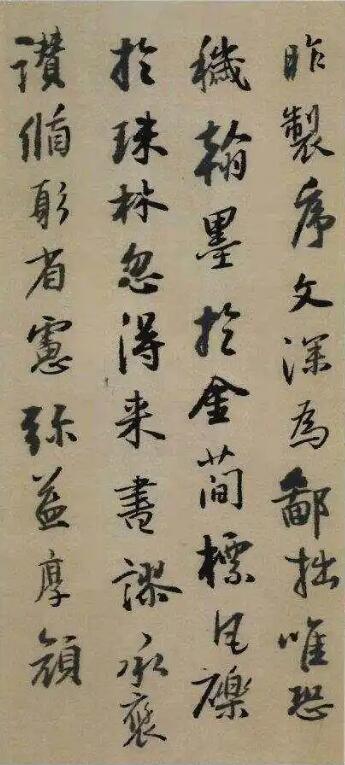 昨製序文深為鄙拙唯恐
穢翰墨於金簡標瓦礫
於珠林忽得来書謬承褒
讚循躬省慮弥益厚顔